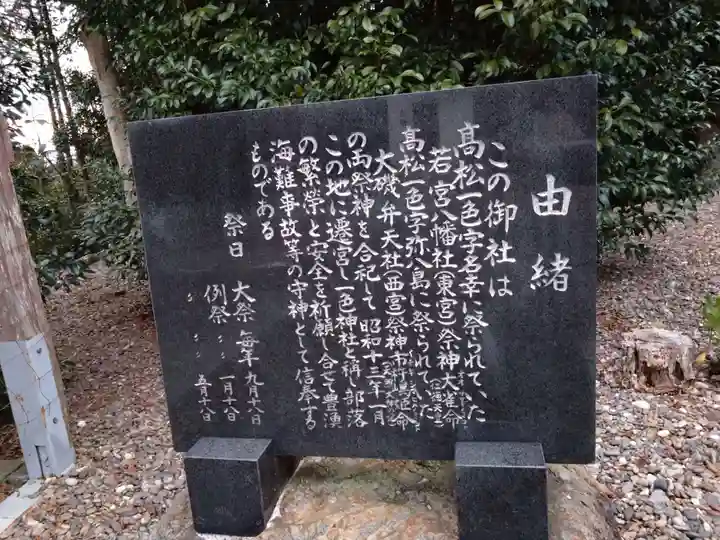 由緒
この御社は
髙松一色字名幸に祭られていた
若一宮八幡社(東宮)祭神大雀命
髙松一色字弥八島に祭られていた
大磯弁天社(西宮祭神市
の両祭神を合祀して昭和十三年一月
この地に遷宮し一色神社と称し部落
の繁栄と安全を祈願し合せて豊漁
海難事故等の守神として信奉する
ものである
祭日
大祭 毎年 九月十八日
例祭 〃〃 一月十八日
〃〃 〃〃 五月十八日